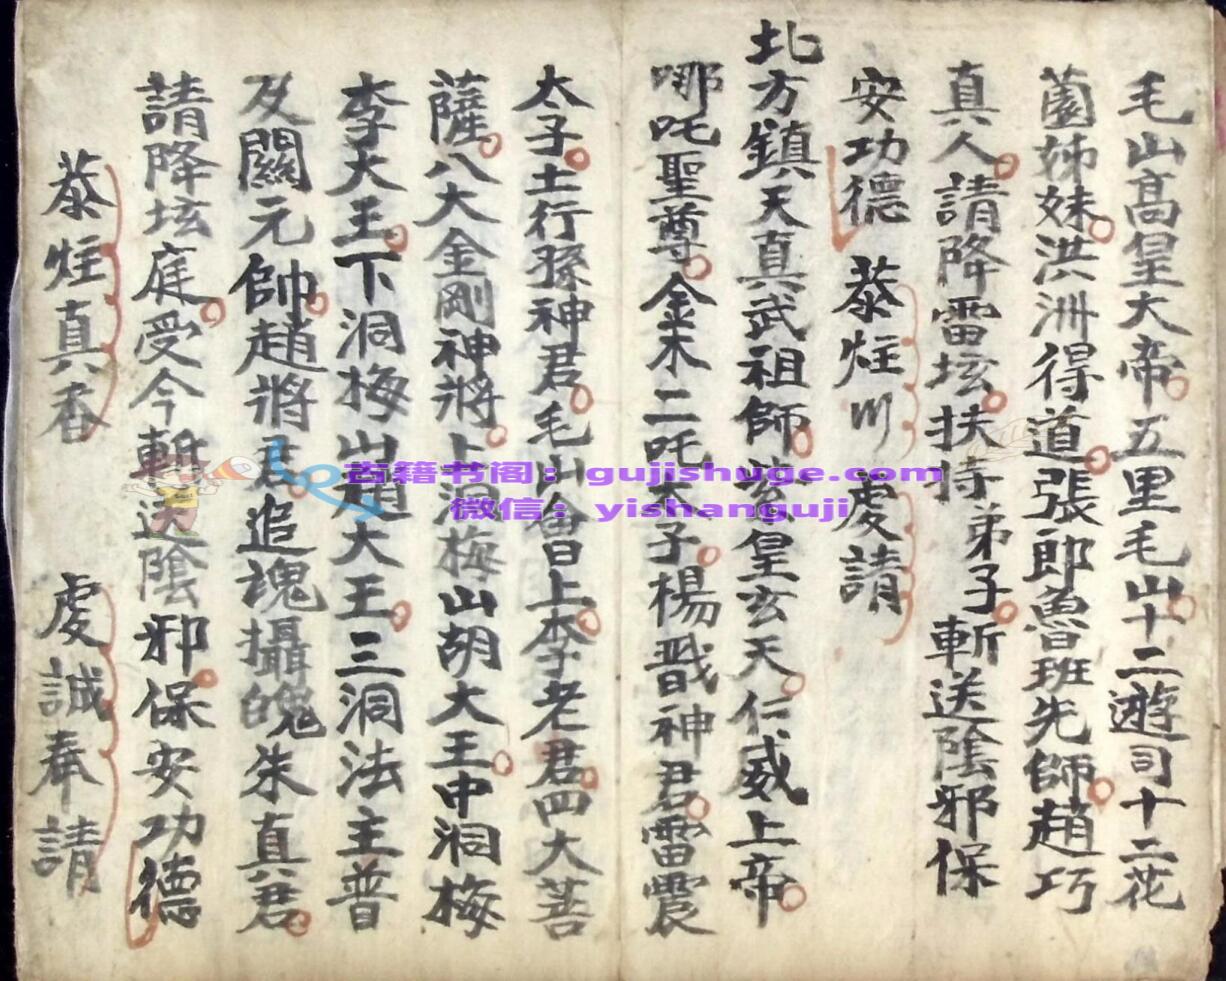 毛山髙皇大帝五里毛山十二遊司十二花
薗姊妹洪洲得道張郎魯班先師趙巧
真人請降雷坛扶持弟子斬送陰邪保
安功德 㳟炷川 虔請
北方鎮天真武祖師玄皇玄天仁威上帝
哪吒聖尊金木二吒太子楊戩神君雷震
太子土行孫神君毛山會日上李老君四大菩
薩八大金剛神將上洞梅山胡大王中洞梅
李大王下洞梅山趙大王三洞法主普
及關元帥趙將君追魂攝魄朱真君
請降坛庭受今斬送陰邪保安功德
㳟炷真香 虔誠奉請
古籍书阁：gujishuge.com
微信：yishanguji